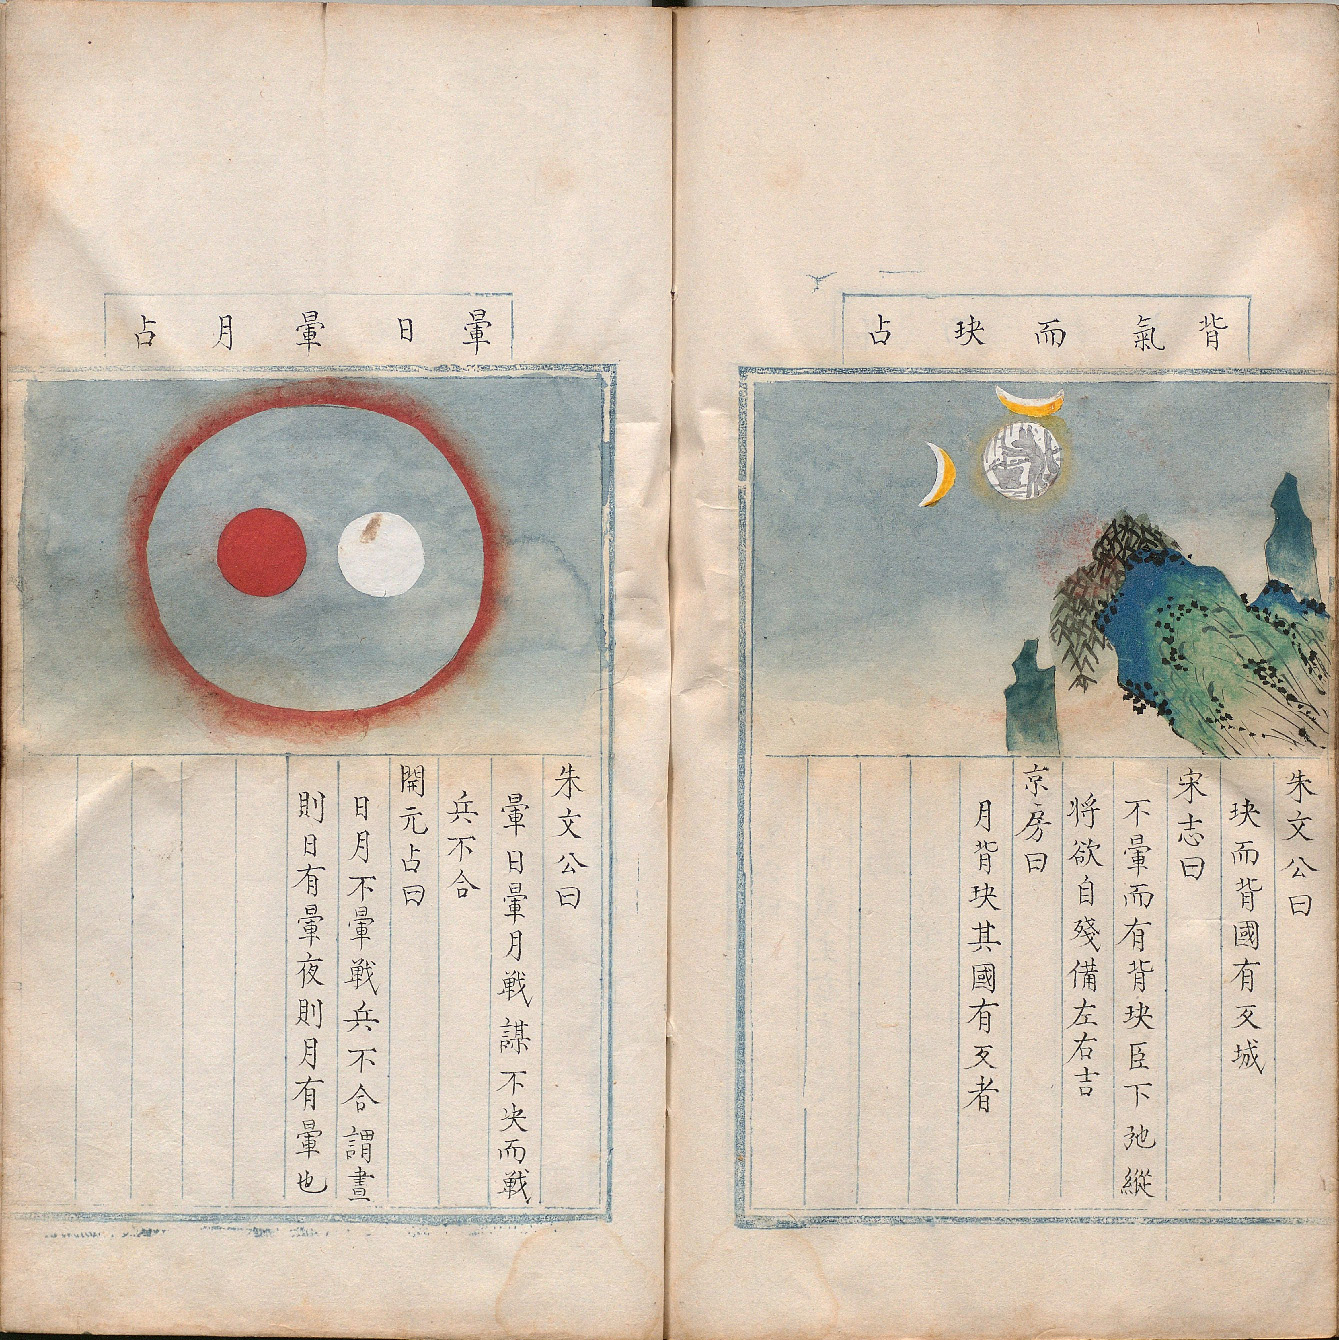 背氣而玦占
朱文公曰
玦而背國有反城
宋志曰
不暈而有背玦臣下弛縱
将欲自殘備左右吉
京房曰
月背玦其國有反者
暈日暈月占
朱文公曰
暈日暈月戦謀不决而戦
兵不合
開元占曰
日月不暈戦兵不合謂晝
則日有暈夜則月有暈也